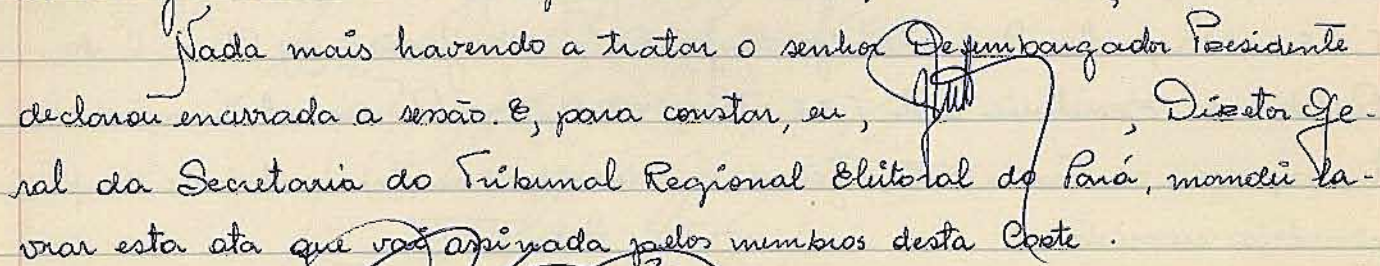 Nada mais havendo a tratar o senhor Desembargador Presidente
declarou encerrada a sessão. E, para constar, eu, , Diretor Ge-
ral da Secretaria do Tribunal Regional Eleitoral do Pará, mandei la-
vrar esta ata que vai assinada pelos membros desta Corte.